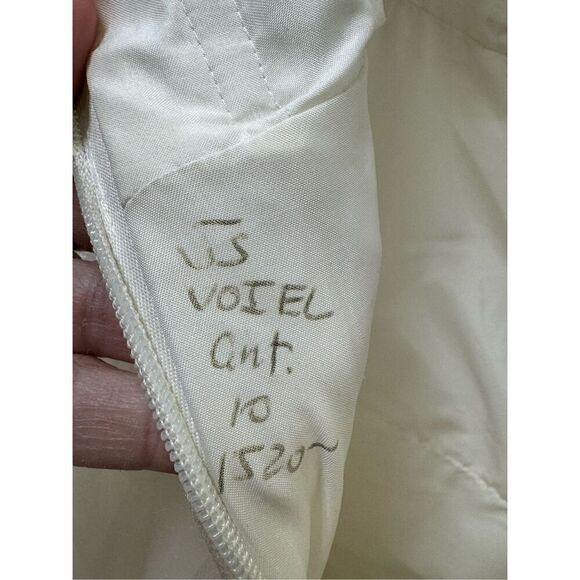 JS
VOIEL
ant.
10
1520~